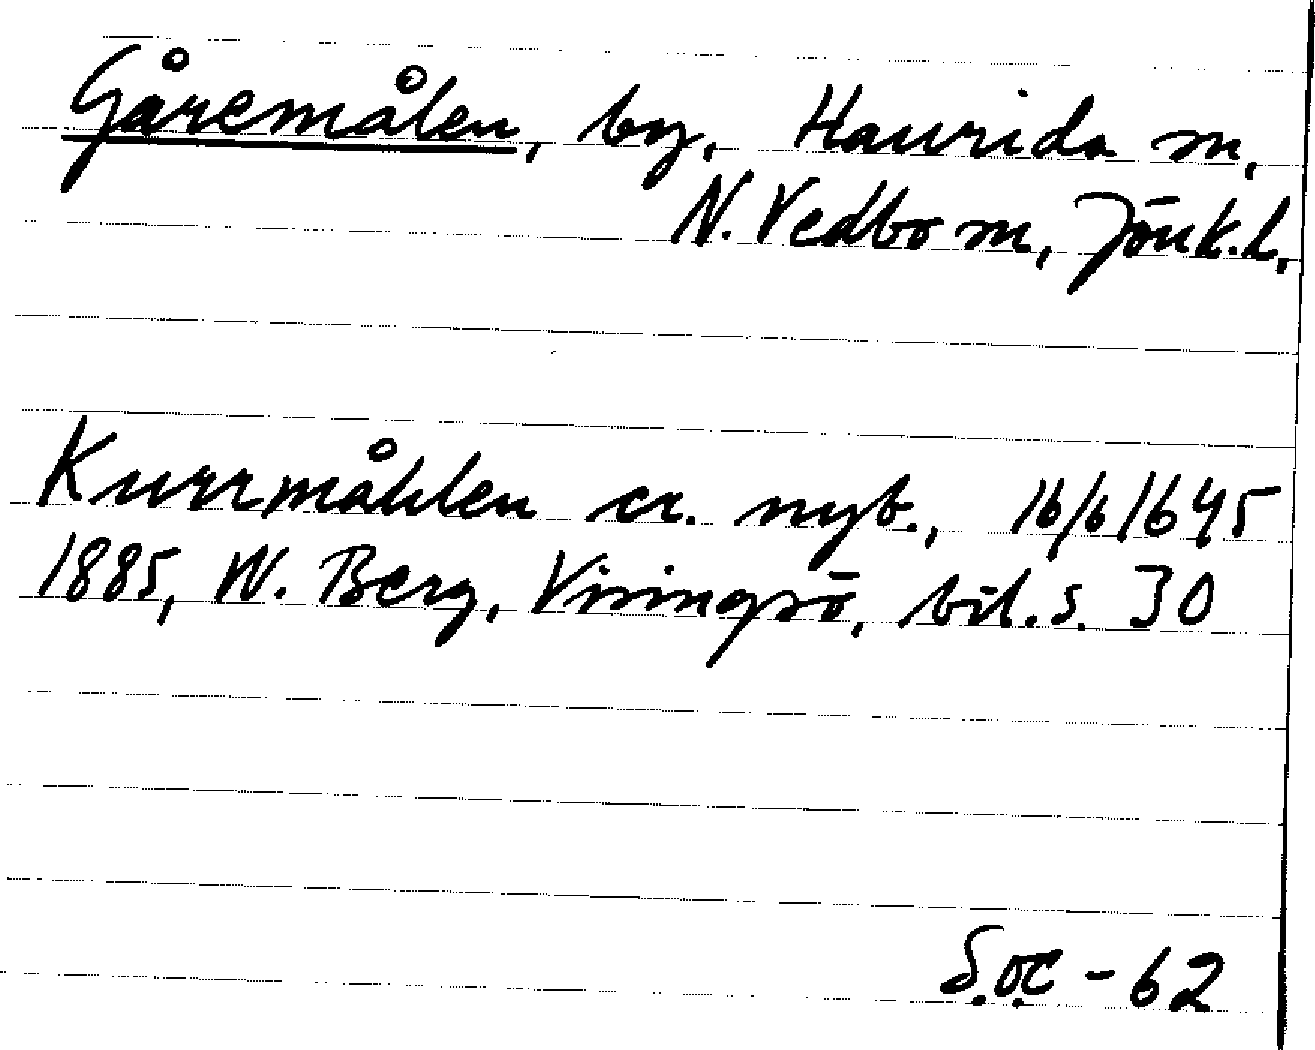 Gåremålen, by, Haurida sn,
N. Vedbo sn, Jönk.l.
Kurrmåhlen cr. nyb., 16/6 1645
1885, W. Berg, Visingsö, bil. s. 30
-62